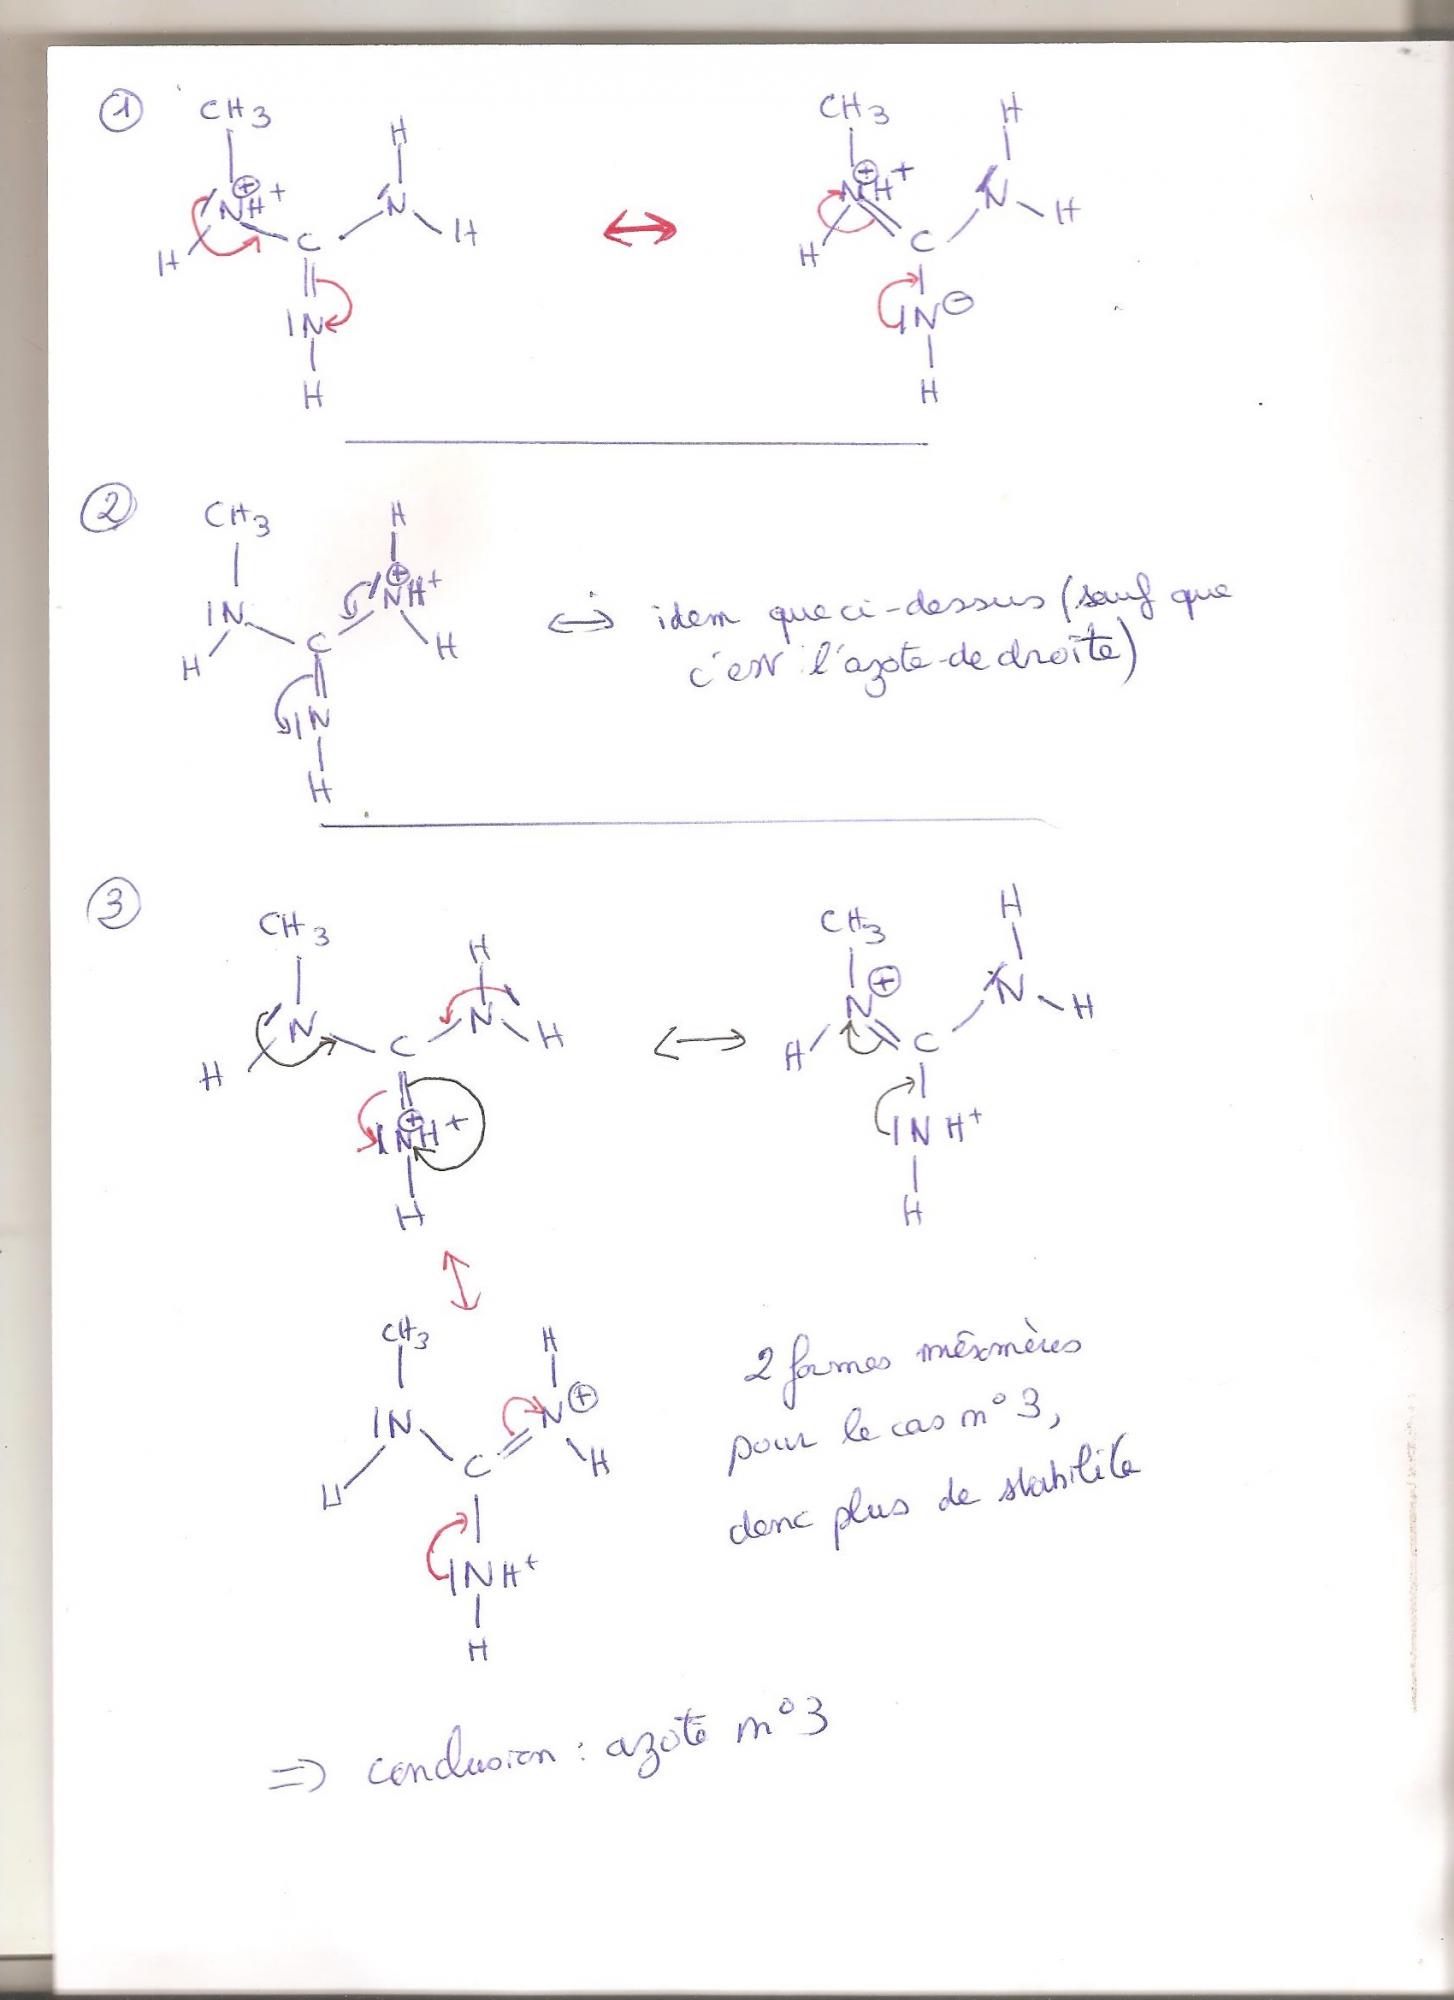 ①
CH3
H
CH3
H
⊕
NH+
N
⊕
NH+
N
H
C
H
↔
H
C
H
IN
IN⊖
H
H
②
CH3
H
⊕
NH+
IN
C
H
H
IN
H
⇔ idem que ci-dessus (sauf que
c'est l'azote de droite)
③
CH3
H
CH3
H
⊕
N
N
N
N
H
C
H
↔
H
C
H
⊕
INH+
INH+
H
H
CH3
H
IN
N⊕
H
C
H
INH+
H
2 formes mésomères
pour le cas n°3,
donc plus de stabilité
⇒ conclusion : azote n°3